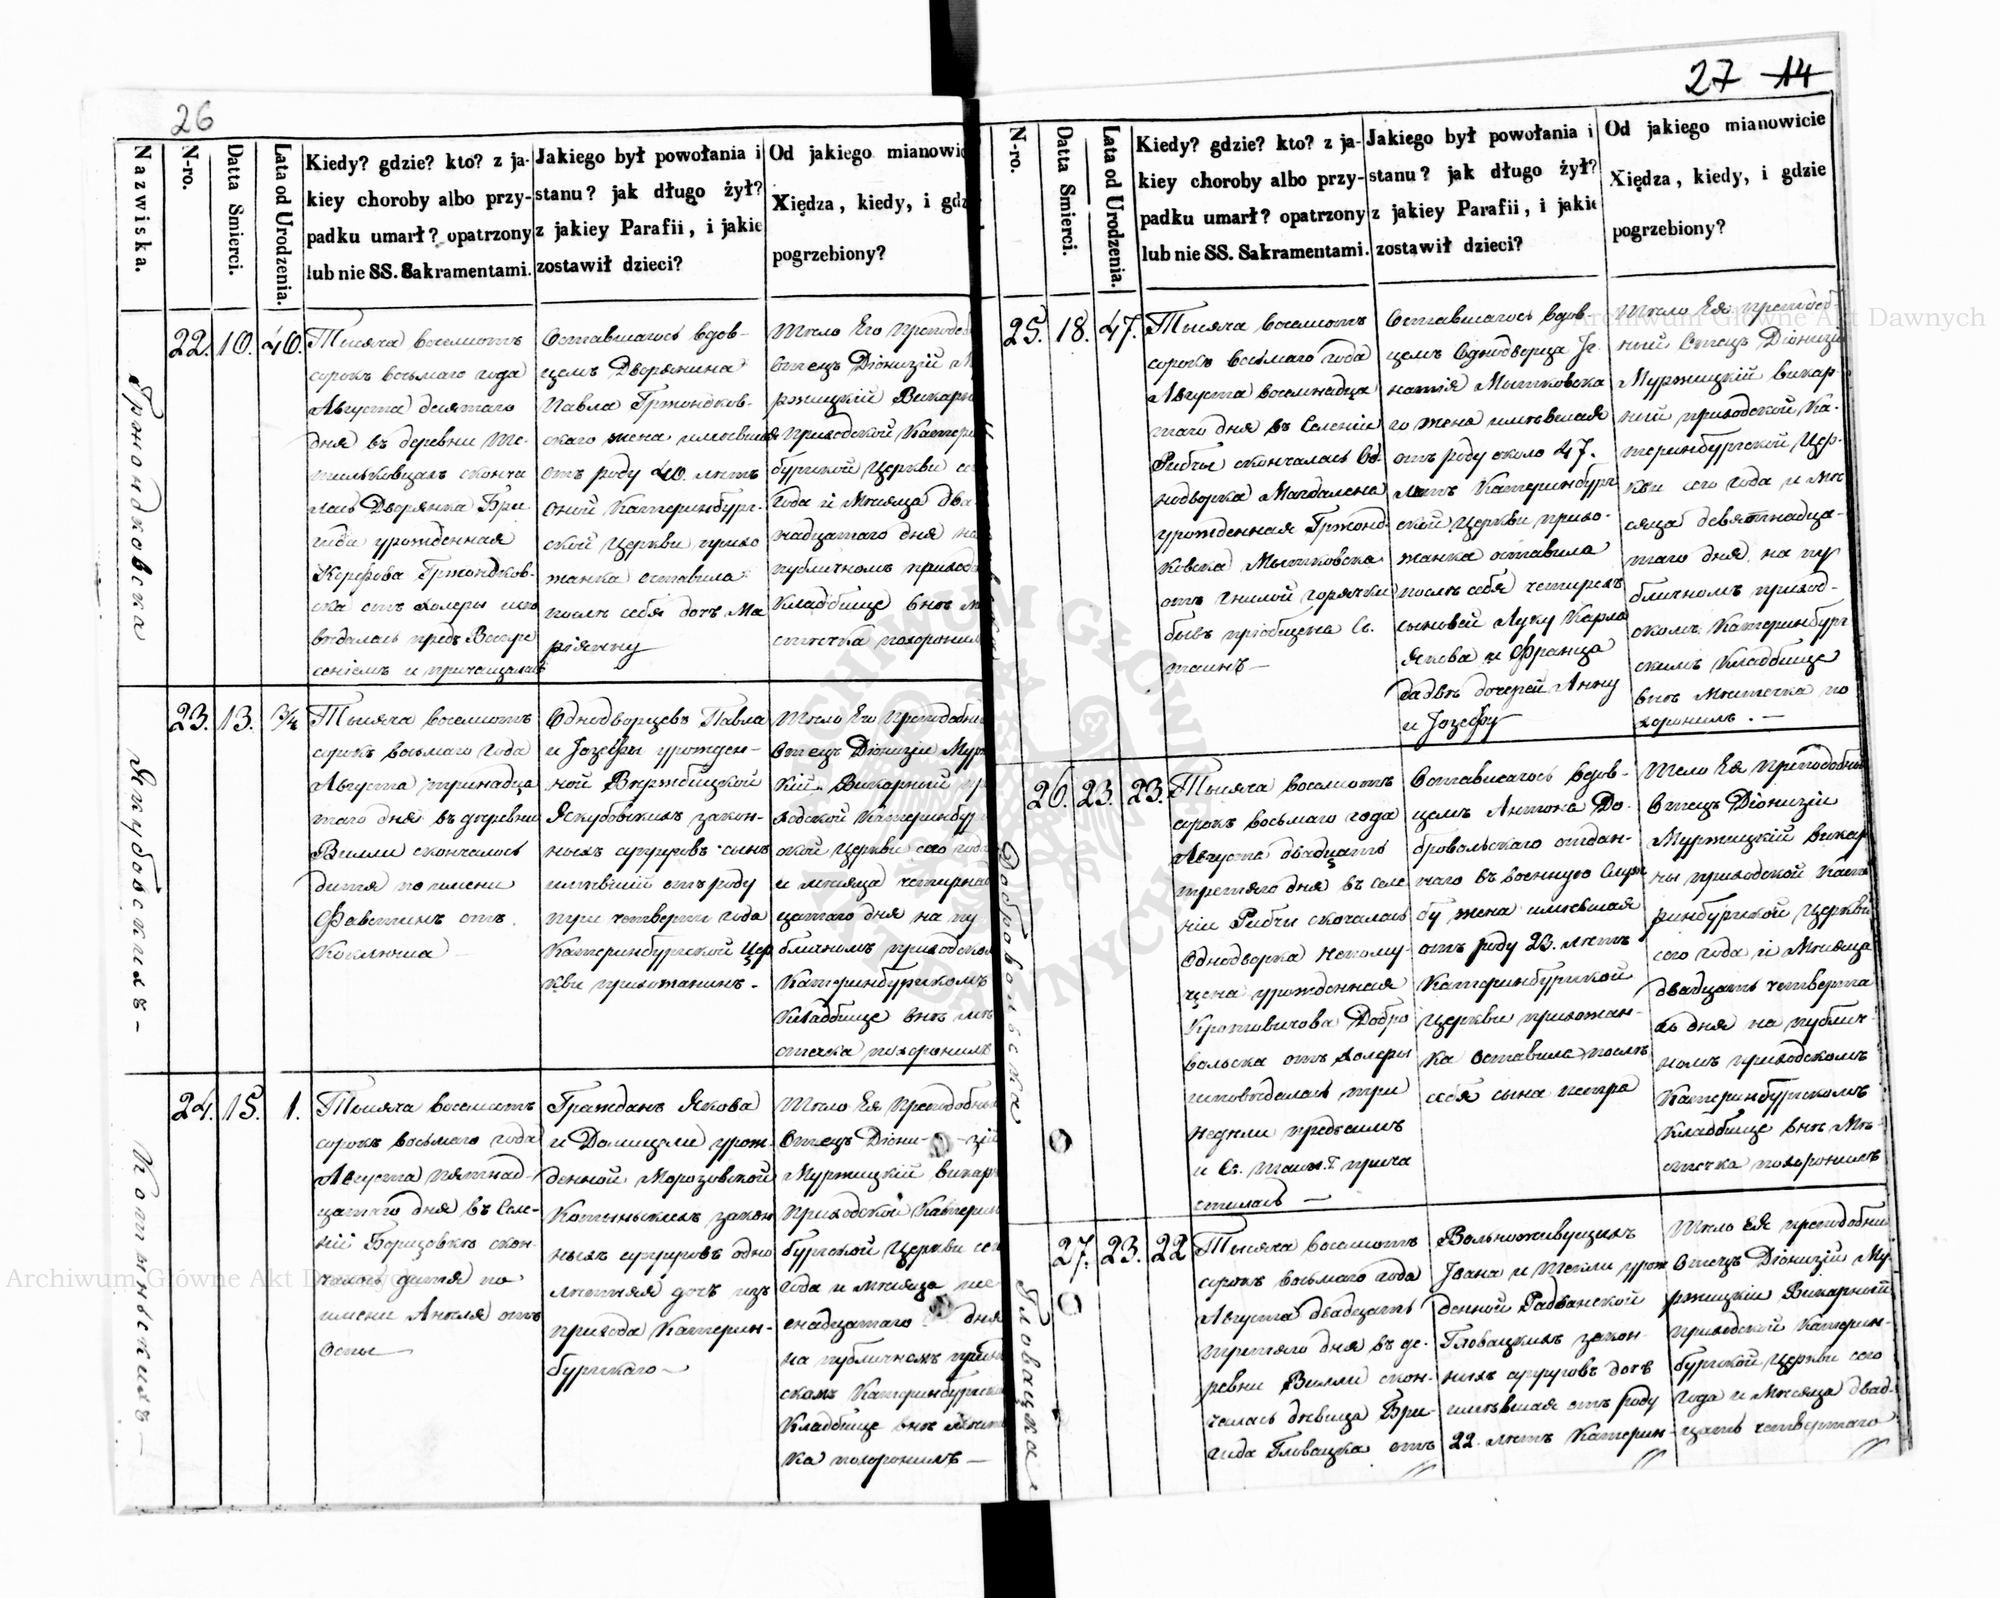 26
Nazwiska.
N-ro.
Datta Smierci.
Lata od Urodzenia.
Kiedy? gdzie? kto? z ja-
kiey choroby albo przy-
padku umarł? opatrzony
lub nie SS. Sakramentami.
Jakiego był powołania i
stanu? jak długo żył?
z jakiey Parafii, i jakie
zostawił dzieci?
Od jakiego mianowic
Xiędza, kiedy, i gdz
pogrzebiony?
Гржондковска
22.
10.
40.
Тысяча восемсотъ
сорокъ восьмаго года
Августа десятаго
дня въ деревни
сконча
лась Дворянка Бри
гида урожденная
Гржондков-
ска отъ холеры испо
Оставшагось вдов-
цемъ Дворянина
Павла Гржондков-
скаго жена имевшая
отъ роду 40. летъ
оной Катеринбург-
ской Церкви прихо
жанка оставила
после себя дочь Ма
ріянну
Тело Его Преподоб
Отецъ Діонизій М
ржицкій Викарн
Приходской Катери
бургской Церкви се
года и Месяца два
надцатаго дня на
публичномъ приход
Кладбище вне м
стечка похорони
Якубовскихъ -
23.
13.
3/4
Тысяча восемсотъ
сорокъ восьмаго года
Августа тринадца
таго дня въ деревни
Вилли скончалось
дитя по имени
Фавстинъ отъ
Коклюша -
Однодворцевъ Павла
и Іозефы урожден-
ной Виржбицкой
Якубовскихъ закон-
ныхъ супруговъ сынъ
имевшій отъ роду
три четверти года
Катеринбургской Цер
кви прихожанинъ. -
Тело Его Преподобн
Отецъ Діонизій Мур
кій Викарный пр
ходской Катеринбур
ской Церкви сего год
и месяца четырнад
цатаго дня на пу
бличномъ приходско
Катеринбургскомъ
Кладбище вне ме
стечка похоронилъ
Котыньскихъ -
24.
15.
1.
Тысяча восемсотъ
сорокъ восьмаго года
Августа пятнад-
цатаго дня въ Селе-
ніи скон-
чалось дитя по
имени Анеля отъ
Оспы -
Гражданъ Якова
и Домицели урож-
денной Морозовской
Котыньскихъ закон
ныхъ супруговъ одно
летняя дочь изъ
прихода Катерин-
бургскаго -
Тело Ея Преподобны
Отецъ Діони-зій
Муржицкій викар
Приходской Катерин
бургской Церкви сего
года и месяца ше
снадцатаго дня
на публичномъ прихо
скомъ Катеринбургско
Кладбище вне местеч
ка похоронилъ -
27 14
N-ro.
Datta Smierci.
Lata od Urodzenia.
Kiedy? gdzie? kto? z ja-
kiey choroby albo przy-
padku umarł? opatrzony
lub nie SS. Sakramentami.
Jakiego był powołania i
stanu? jak długo żył?
z jakiey Parafii, i jakie
zostawił dzieci?
Od jakiego mianowicie
Xiędza, kiedy, i gdzie
pogrzebiony?
25.
18.
47.
Тысяча восемсотъ
сорокъ восьмаго года
Августа восемнадца
таго дня въ Селеніи
Рибчы скончалась Од-
нодворка Магдалена
урожденная Гржонд-
ковска Мытковска
отъ гнилой горячки
бывъ пріобщена Св.
таинъ -
Оставшагось вдов-
цемъ Однодворца Іг
натія Мытковска
го жена имевшая
отъ роду около 47.
летъ Катеринбург
ской Церкви прихо-
жанка оставила
после себя четырехъ
сыновей Луку Карла
Якова и Франца
да две дочерей Анну
и Іозефу
Тело Ея преподоб-
ный Отецъ Діонизій
Муржицкій викар-
ный приходской Ка-
теринбургской Цер-
кви сего года и ме
сяца девятнадца-
таго дня на пу
бличномъ приход-
скомъ Катеринбург
скимъ Кладбище
вне Местечка по
хоронилъ. -
Добровольска
26.
23.
23.
Тысяча восемсотъ
сорокъ восьмаго года
Августа двадцать
третяго дня въ селе
ніи Рибчи скочалась
Однодворка Непому-
цена урожденная
Кротовичова Добро
вольска отъ холеры
исповедалась три
недели предъ симъ
и Св. Таинъ прича
стилась -
Оставшагось вдов-
цемъ Антона До-
бровольскаго отдан-
наго въ военную служ
бу жена имевшая
отъ роду 23. летъ
Катеринбургской
Церкви прихожан-
ка оставила после
себя сына Петра
Тело Ея Преподобный
Отецъ Діонизій
Муржицкій викар
ны приходской Кате
ринбургской Церкви
сего года и Месяца
двадцать четверта
го дня на публич-
номъ приходскомъ
Катеринбургскомъ
Кладбище вне Ме-
стечка похоронилъ
Гловацка
27.
23.
22
Тысяча восемсотъ
сорокъ восьмаго года
Августа двадцать
третяго дня въ де-
ревни Вилли скон-
чалась девица Бри-
гида Гловацка отъ
Вольноживущихъ
Івана и Текли урож
денной Радванской
Гловацкихъ закон-
ныхъ супруговъ дочь
имевшая отъ роду
22. летъ Катерин-
Тело Ея преподобны
Отецъ Діонизій Му
ржицкій Викарный
приходской Катерин-
бургской Церкви сего
года и Месяца двад-
цать четвертаго
Archiwum Główne Akt Dawnych
Archiwum Główne Akt Dawnych
ARCHIWUM GŁÓWNE AKT DAWNYCH